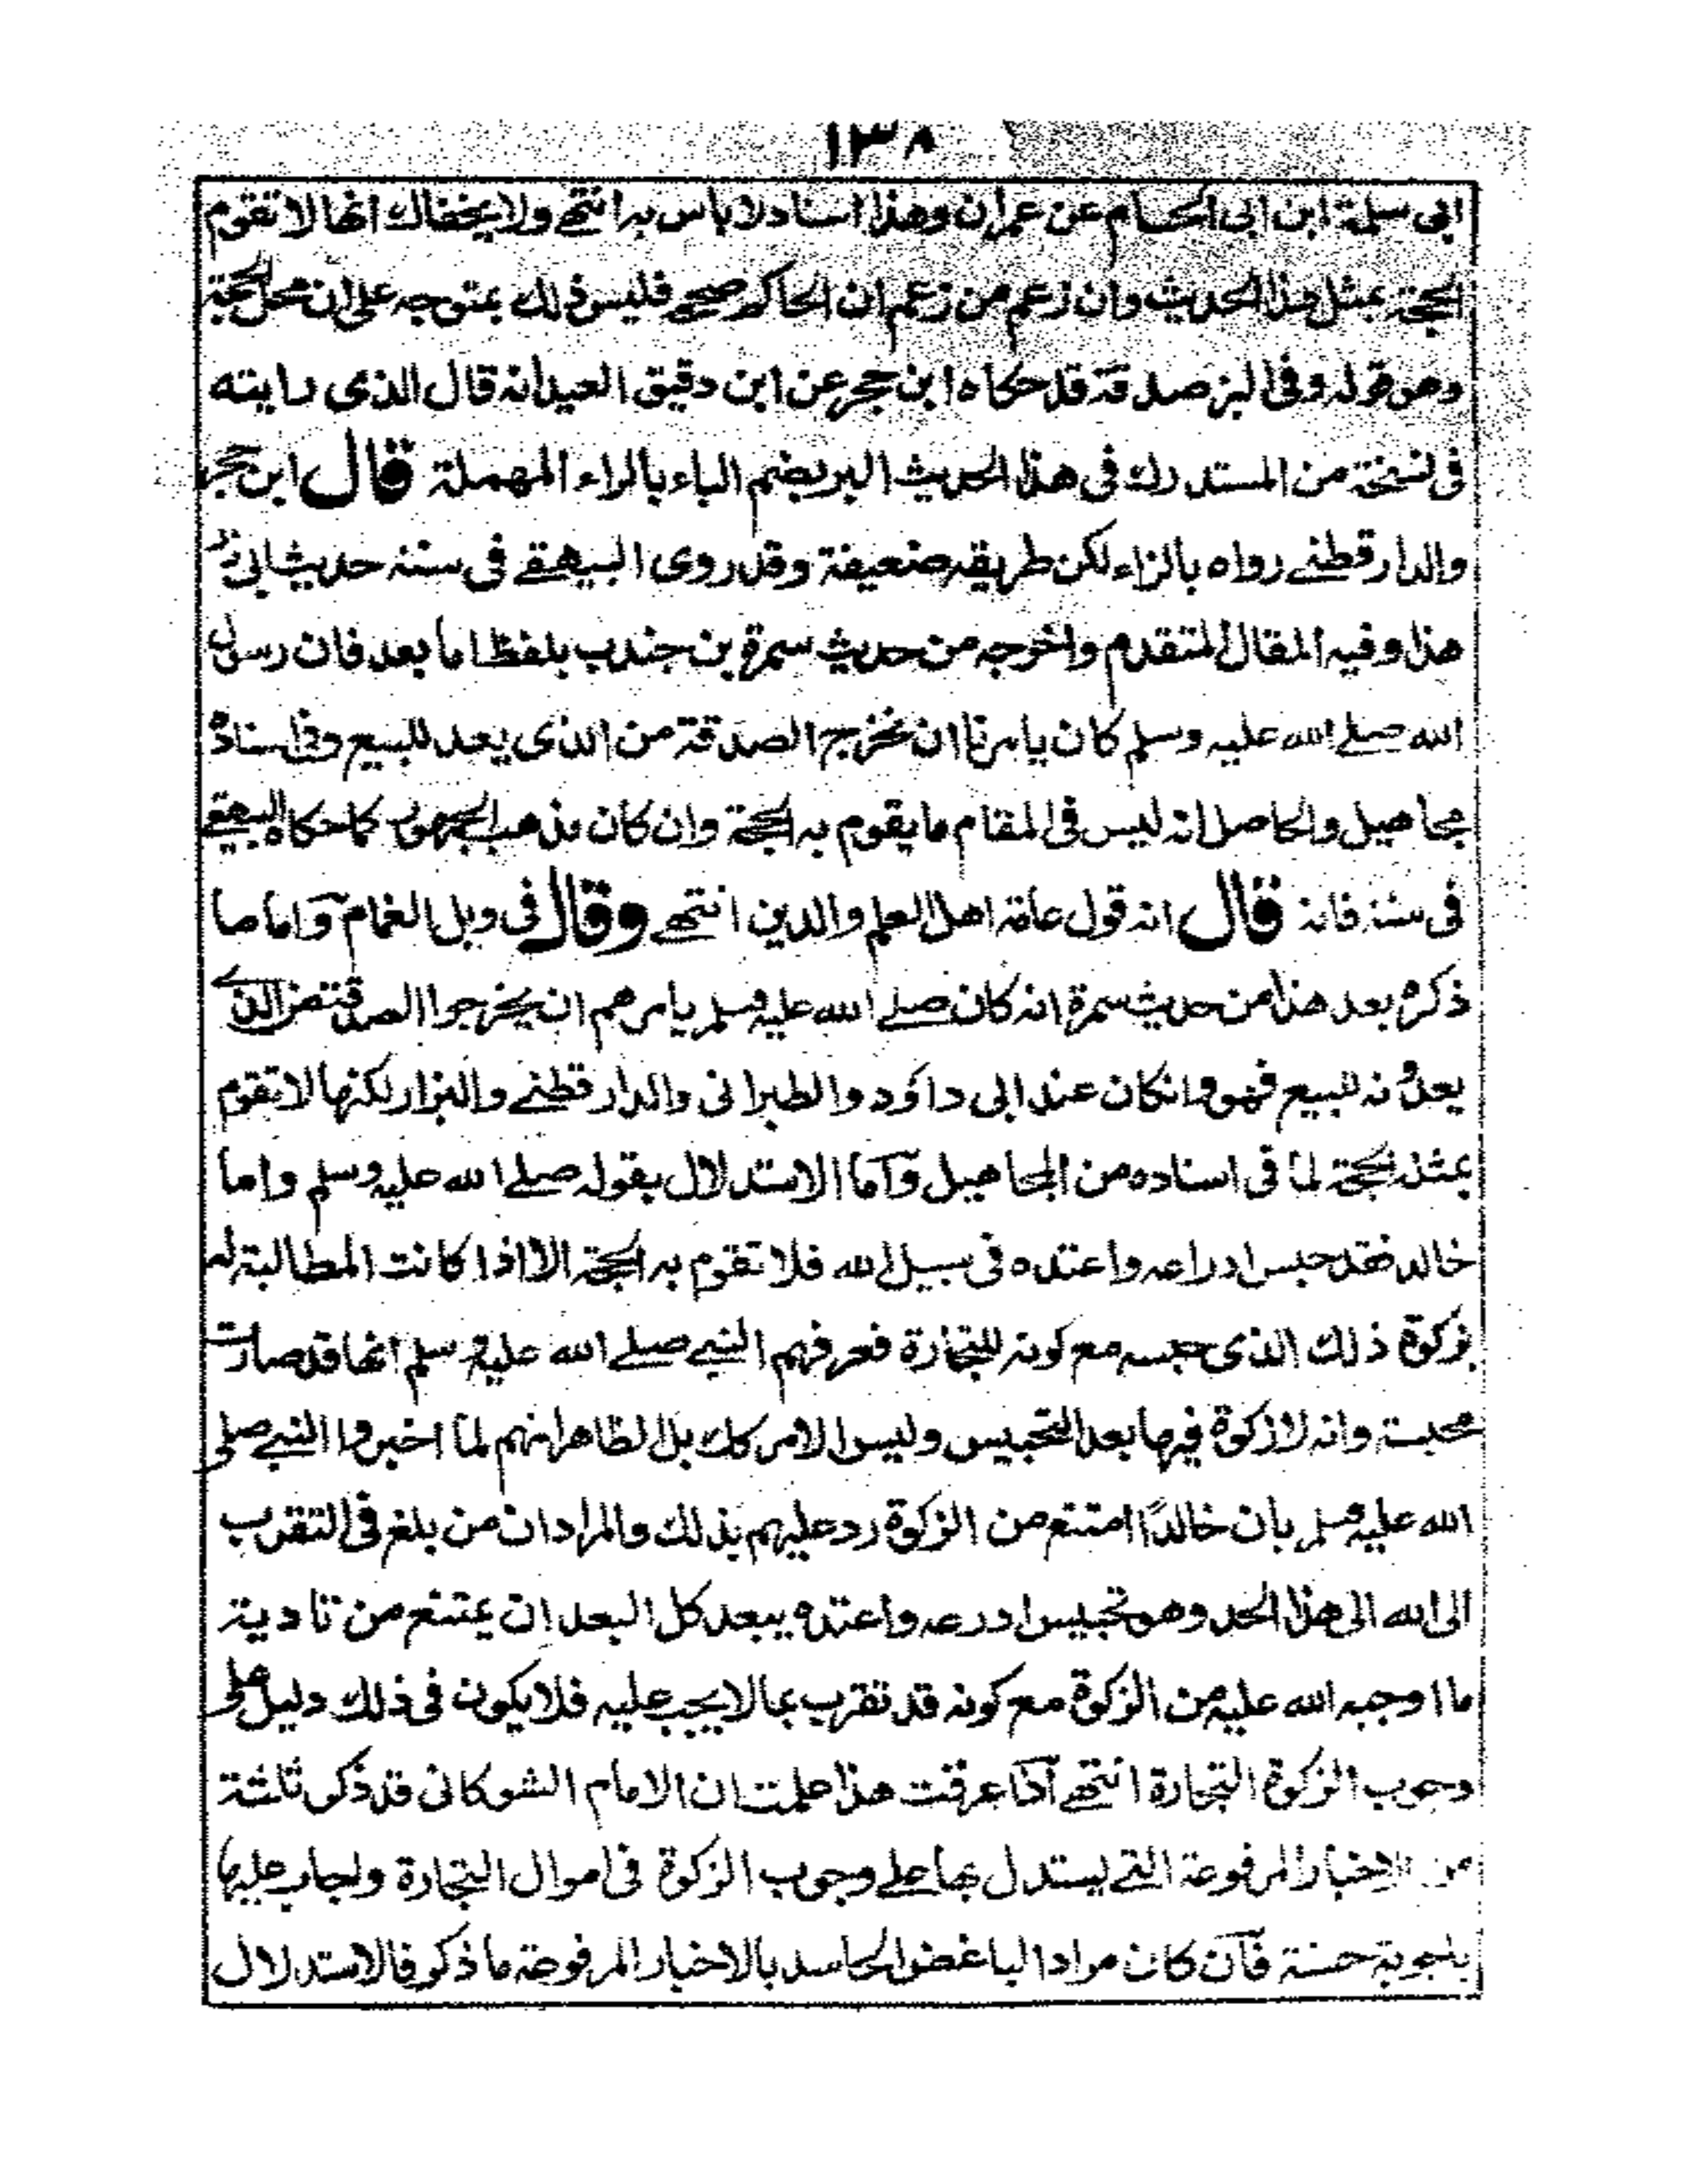 ١٣٨
ابى سلمة ابن ابى الحسام عن عمران وهذا اسناد لا باس به انتهى ولا يخفاك انها لا تقوم
الحجة بمثل هذا الحديث وان زعم من زعم ان الحاكم صححه فليس ذلك بمتوجه على ان محل الحجة
وهو قوله وفى البز صدقة قد حكاه ابن حجر عن ابن دقيق العيد انه قال الذى رايته
فى نسخة من المستدرك فى هذا الحديث البر بضم الباء بالراء المهملة قال ابن حجر
والدارقطنے رواه بالزاء لكن طريقه ضعيفة وقد روى البيهقے فى سننه حديث ابى ذر
هذا وفيه المقال المتقدم واخرجه من حديث سمرة بن جندب بلفظ اما بعد فان رسول
الله صلے الله عليه وسلم كان يامرنا ان نخرج الصدقة من الذى يعد للبيع وفى اسناده
مجاهيل والحاصل انه ليس فى المقام ما يقوم به الحجة وان كان مذهب الجمهور كما حكاه البيهقے
فى سننه فانه قال انه قول عامة اهل العلم والدين انتهے وقال فى وبل الغمام واما ما
ذكره بعد هذا من حديث سمرة انه كان صلے الله عليه وسلم يامرهم ان يخرجوا الصدقة من الذے
يعدونه للبيع فهو وانكان عند ابى داؤد والطبرانى والدارقطنے والبزار لكنها لا تقوم
بمثله الحجة لما فى اسناده من المجاهيل وآما الاستدلال بقوله صلے الله عليه وسلم واما
خالد فقد حبس ادراعه واعتده فى سبيل الله فلا تقوم به الحجة الا اذا كانت المطالبة له
بزكوة ذلك الذى حبسه مع كونه للتجارة فعرفهم النبے صلے الله عليه وسلم انها قد صارت
محبسة وانه لا زكوة فيها بعد التحبيس وليس الامر كك بل الظاهر انهم لما اخبروا النبے صلى
الله عليه وسلم بان خالدًا امتنع من الزكوة رد عليهم بذلك والمراد ان من بلغ فى التقرب
الى الله الى هذا الحد وهو تحبيس ادرعه واعتده يبعد كل البعد ان يمتنع من تادية
ما اوجبه الله عليه من الزكوة مع كونه قد تقرب بما لا يجب عليه فلا يكون فى ذلك دليل على
وجوب الزكوة التجارة انتهے آذا عرفت هذا علمت ان الامام الشوكانى قد ذكر ثلثة
من الاخبار المرفوعة التے يستدل بها علے وجوب الزكوة فى اموال التجارة واجاب عليها
باجوبة حسنة فآن كان مراد الباغض الحاسد بالاخبار المرفوعة ما ذكر فالاستدلال